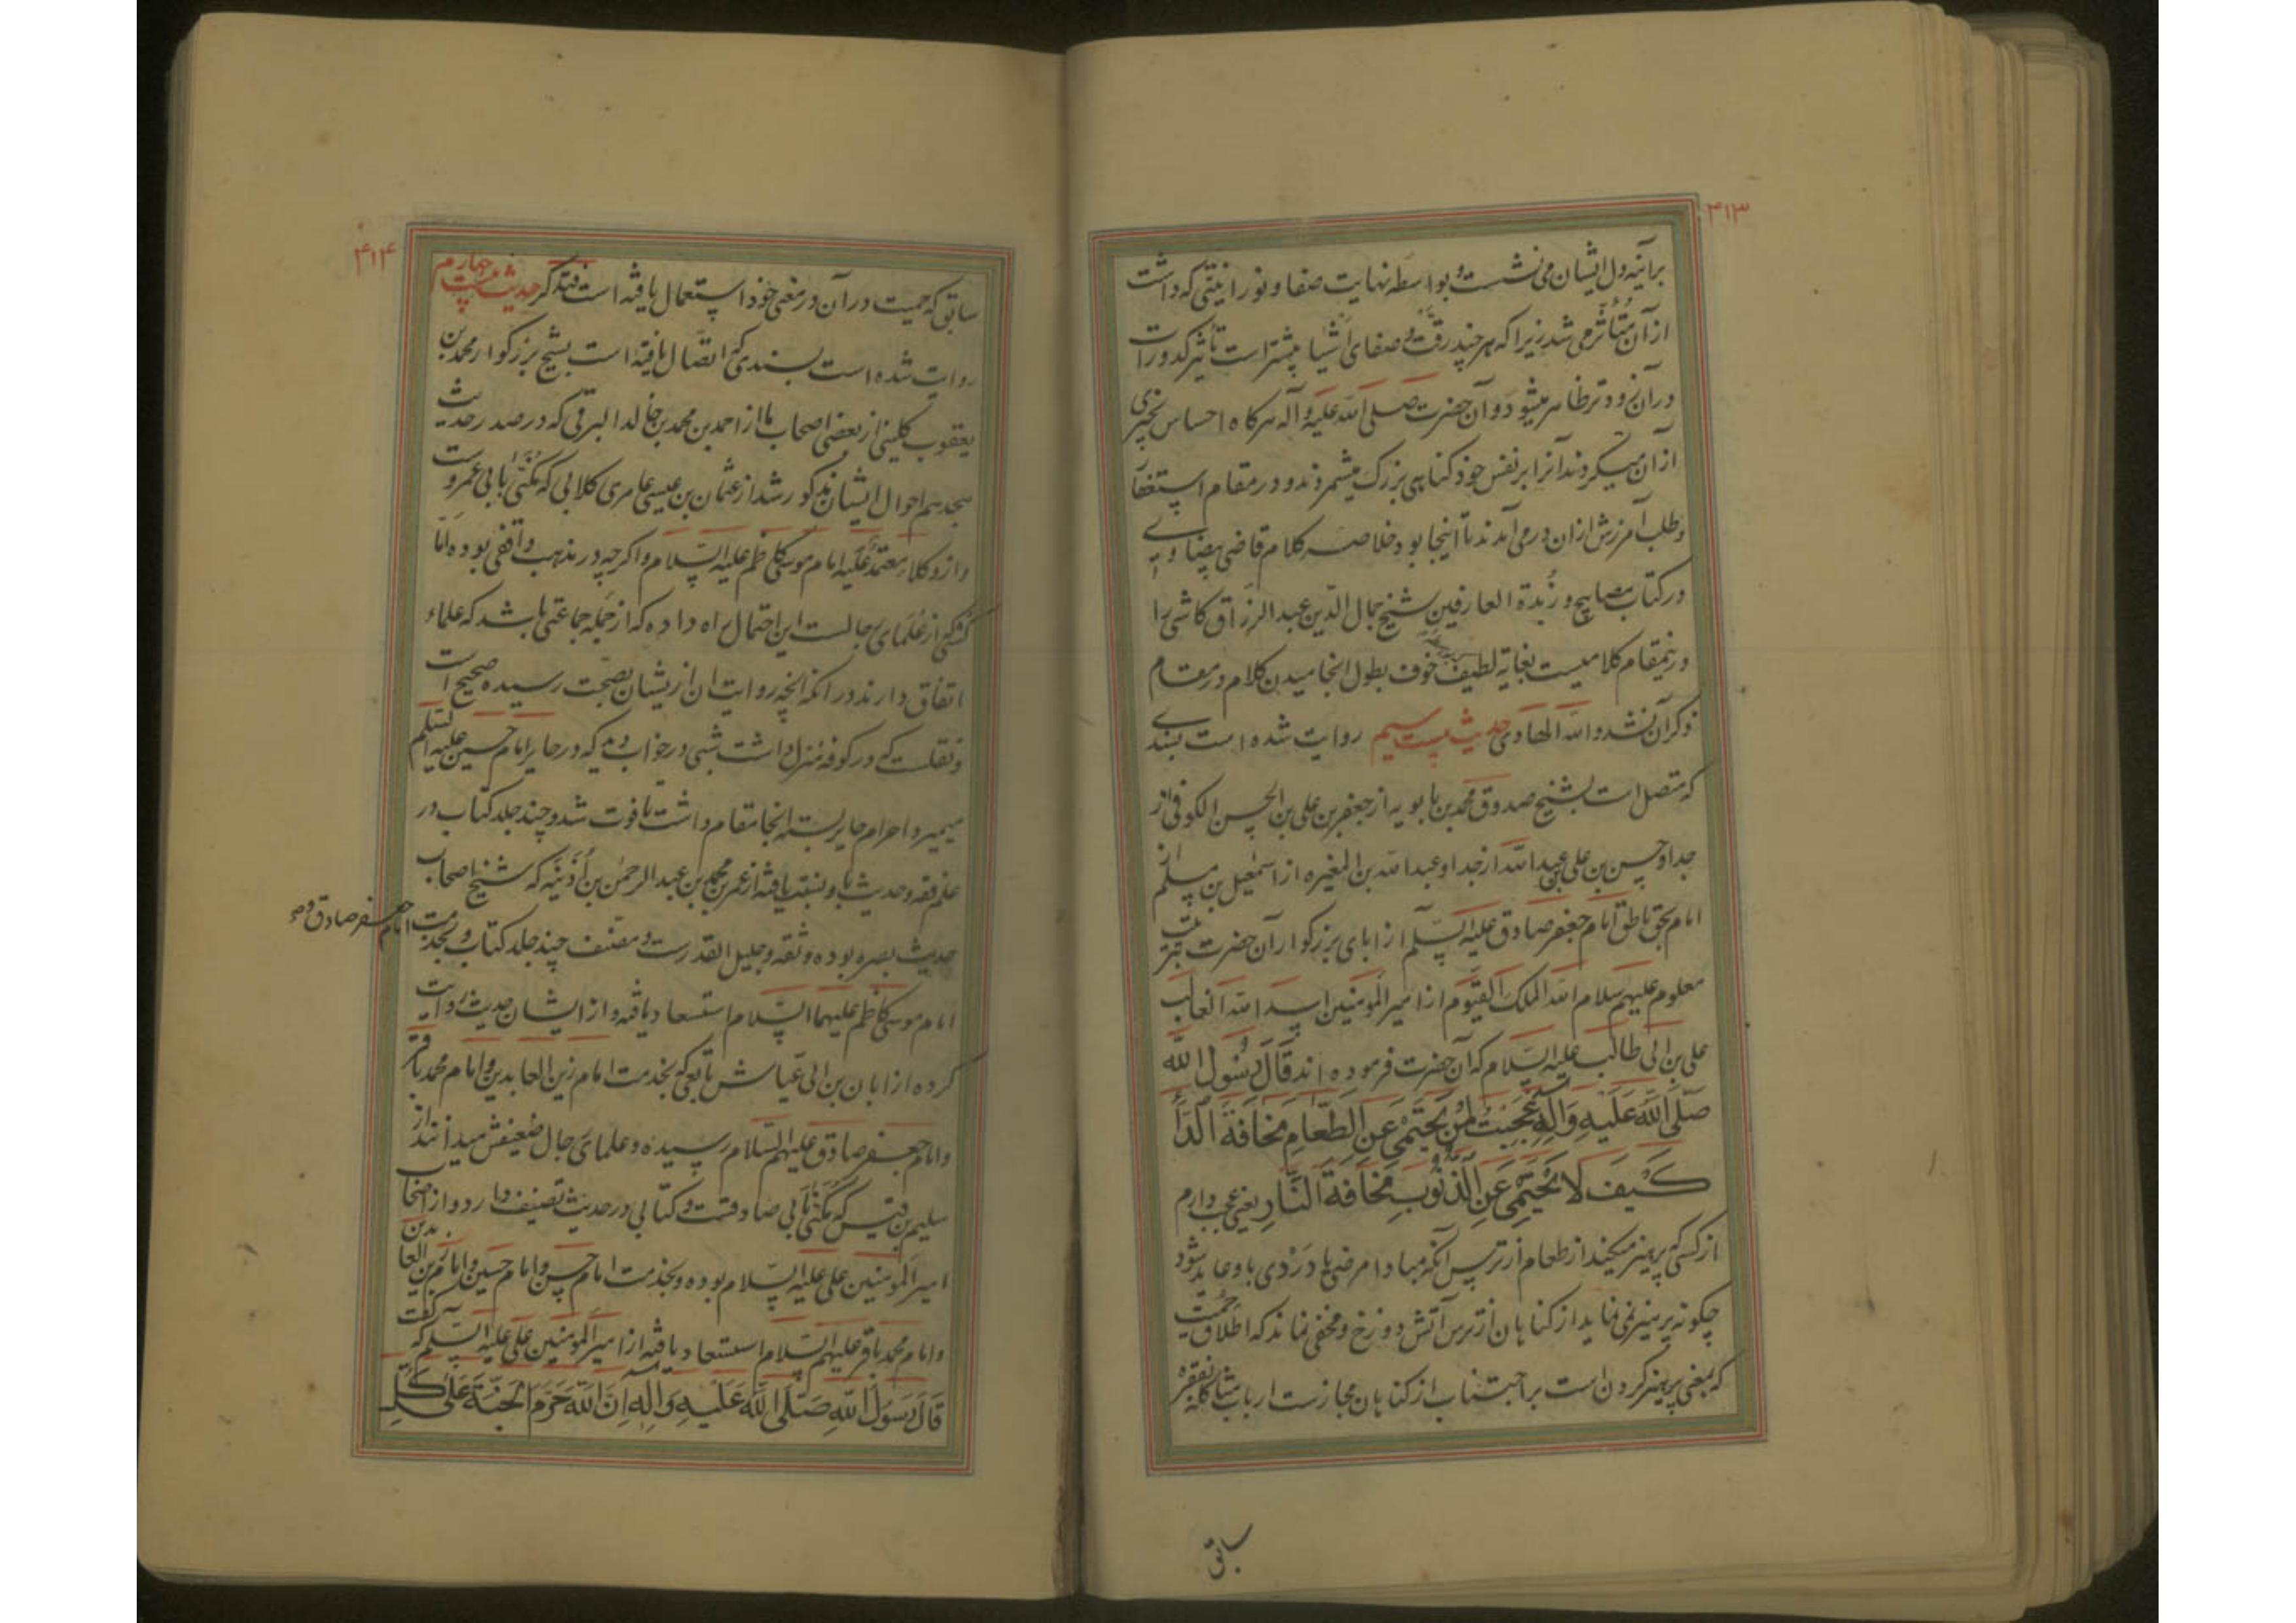 ۴۱۳
برآینه دل ایشان می نشست و بواسطه نهایت صفا و نورانیتی که داشت
از آن متأثر می شد زیرا که هر چند رقت و صفای اشیا بیشتر است تأثیر کدورات
در آن زودتر ظاهر میشود و آن حضرت صلی الله علیه و آله هرکاه احساس بچیزی
از ان میکردند آنرا بر نفس خود کناهی بزرک میشمردند و در مقام استغفا
و طلب آمرزش ازان در می آمدند تا اینجا بود خلاصه کلام قاضی بیضاوی
در کتاب مصابیح و زبدة العارفین شیخ جمال الدین عبد الرزاق کاشی را
درینمقام کلامیست بغایة لطیف خوف بطول انجامیدن کلام در مقام
ذکر آن نشد والله الهادی حدیث بیست سیم روایت شده است بسندی
که متصل است بشیخ صدوق محمد بن بابویه از جعفر بن علی بن الحسن الکوفی از
جد او حسن بن علی بن عبد الله از جد او عبد الله بن المغیره از اسمعیل بن مسلم از
امام بحق ناطق امام جعفر صادق علیه السلم از ابای بزرکوار آن حضرت
معلوم علیهم سلام الله الملک القیوم از امیر المؤمنین اسد الله الغالب
علی بن ابی طالب علیه السلام که آن حضرت فرموده اند قَالَ رَسُولُ الله
صَلَّى اللهُ عَلَيهِ وَآلِهِ عَجِبْتُ لِمَنْ يَحْتَمِي عَنِ الطَّعَامِ مَخَافَةَ الدَّاءِ
كَيْفَ لَا يَحْتَمِي عَنِ الذُّنُوبِ مَخَافَةَ النَّارِ یعنی عجب دارم
از کسی که پرهیز میکند از طعام از ترس آنکه مبادا مرضی یا دردی باو عاید شود
چکونه پرهیز نمی نماید از کناهان از ترس آتش دوزخ و مخفی نماند که اطلاق حمیت
که بمعنی پرهیز کردن است بر اجتناب از کناهان مجازست
سابق
۴۱۴
سابق که حمیت در آن در معنی خود استعمال یافته است فتذکر حدیث بیست چهارم
روایت شده است بسندی که اتصال یافته است بشیخ بزرکوار محمد بن
یعقوب کلینی از بعضی اصحاب ما از احمد بن محمد بن خالد البرقی که در صدر حدیث
هجدهم احوال ایشان مذکور شد از عثمان بن عیسی عامری کلابی که مکنی بابی عمروست
و از وکلاء معتمد علیه امام موسی کاظم علیه السلام و اکرچه در مذهب واقفی بوده اما
کشی که از علمای رجالست این احتمال راه داده که از جمله جماعتی باشد که علماء
اتفاق دارند در انکه انچه روایت ان ازیشان بصحت رسیده صحیح است
و نقلست که در کوفه منزل داشت شبی در خواب دید که در حایر امام حسین علیه السلم
میمیرد احرام حایر بسته انجا مقام داشت تا فوت شد و چند جلد کتاب در
علم فقه و حدیث باو نسبت یافته از عمر بن محمد بن عبد الرحمن بن أُذَینَه که شیخ اصحاب
حدیث بصره بوده و ثقه و جلیل القدرست و مصنف چند جلد کتاب و بخدمت
امام جعفر صادق و
امام موسی کاظم علیهما السلام استسعاد یافته و از ایشان حدیث روایت
کرده از ابان بن ابی عیاش تابعی که بخدمت امام زین العابدین و امام محمد باقر
و امام جعفر صادق علیهم السلام رسیده و علمای رجال ضعیفش میدانند از
سلیم بن قیس که مکنی بابی صادقست و کتابی در حدیث تصنیف دارد و از اصحاب
امیر المؤمنین علی علیه السلام بوده و بخدمت امام حسن و امام حسین و امام زین العابدین
و امام محمد باقر علیهم السلام استسعاد یافته از امیر المؤمنین علی علیه السلم که گفت
قَالَ رَسُولُ اللهِ صَلَّى اللهُ عَلَيهِ وَآلِهِ اِنَّ اللهَ حَرَّمَ الْجَنَّةَ عَلَى كُلِّ